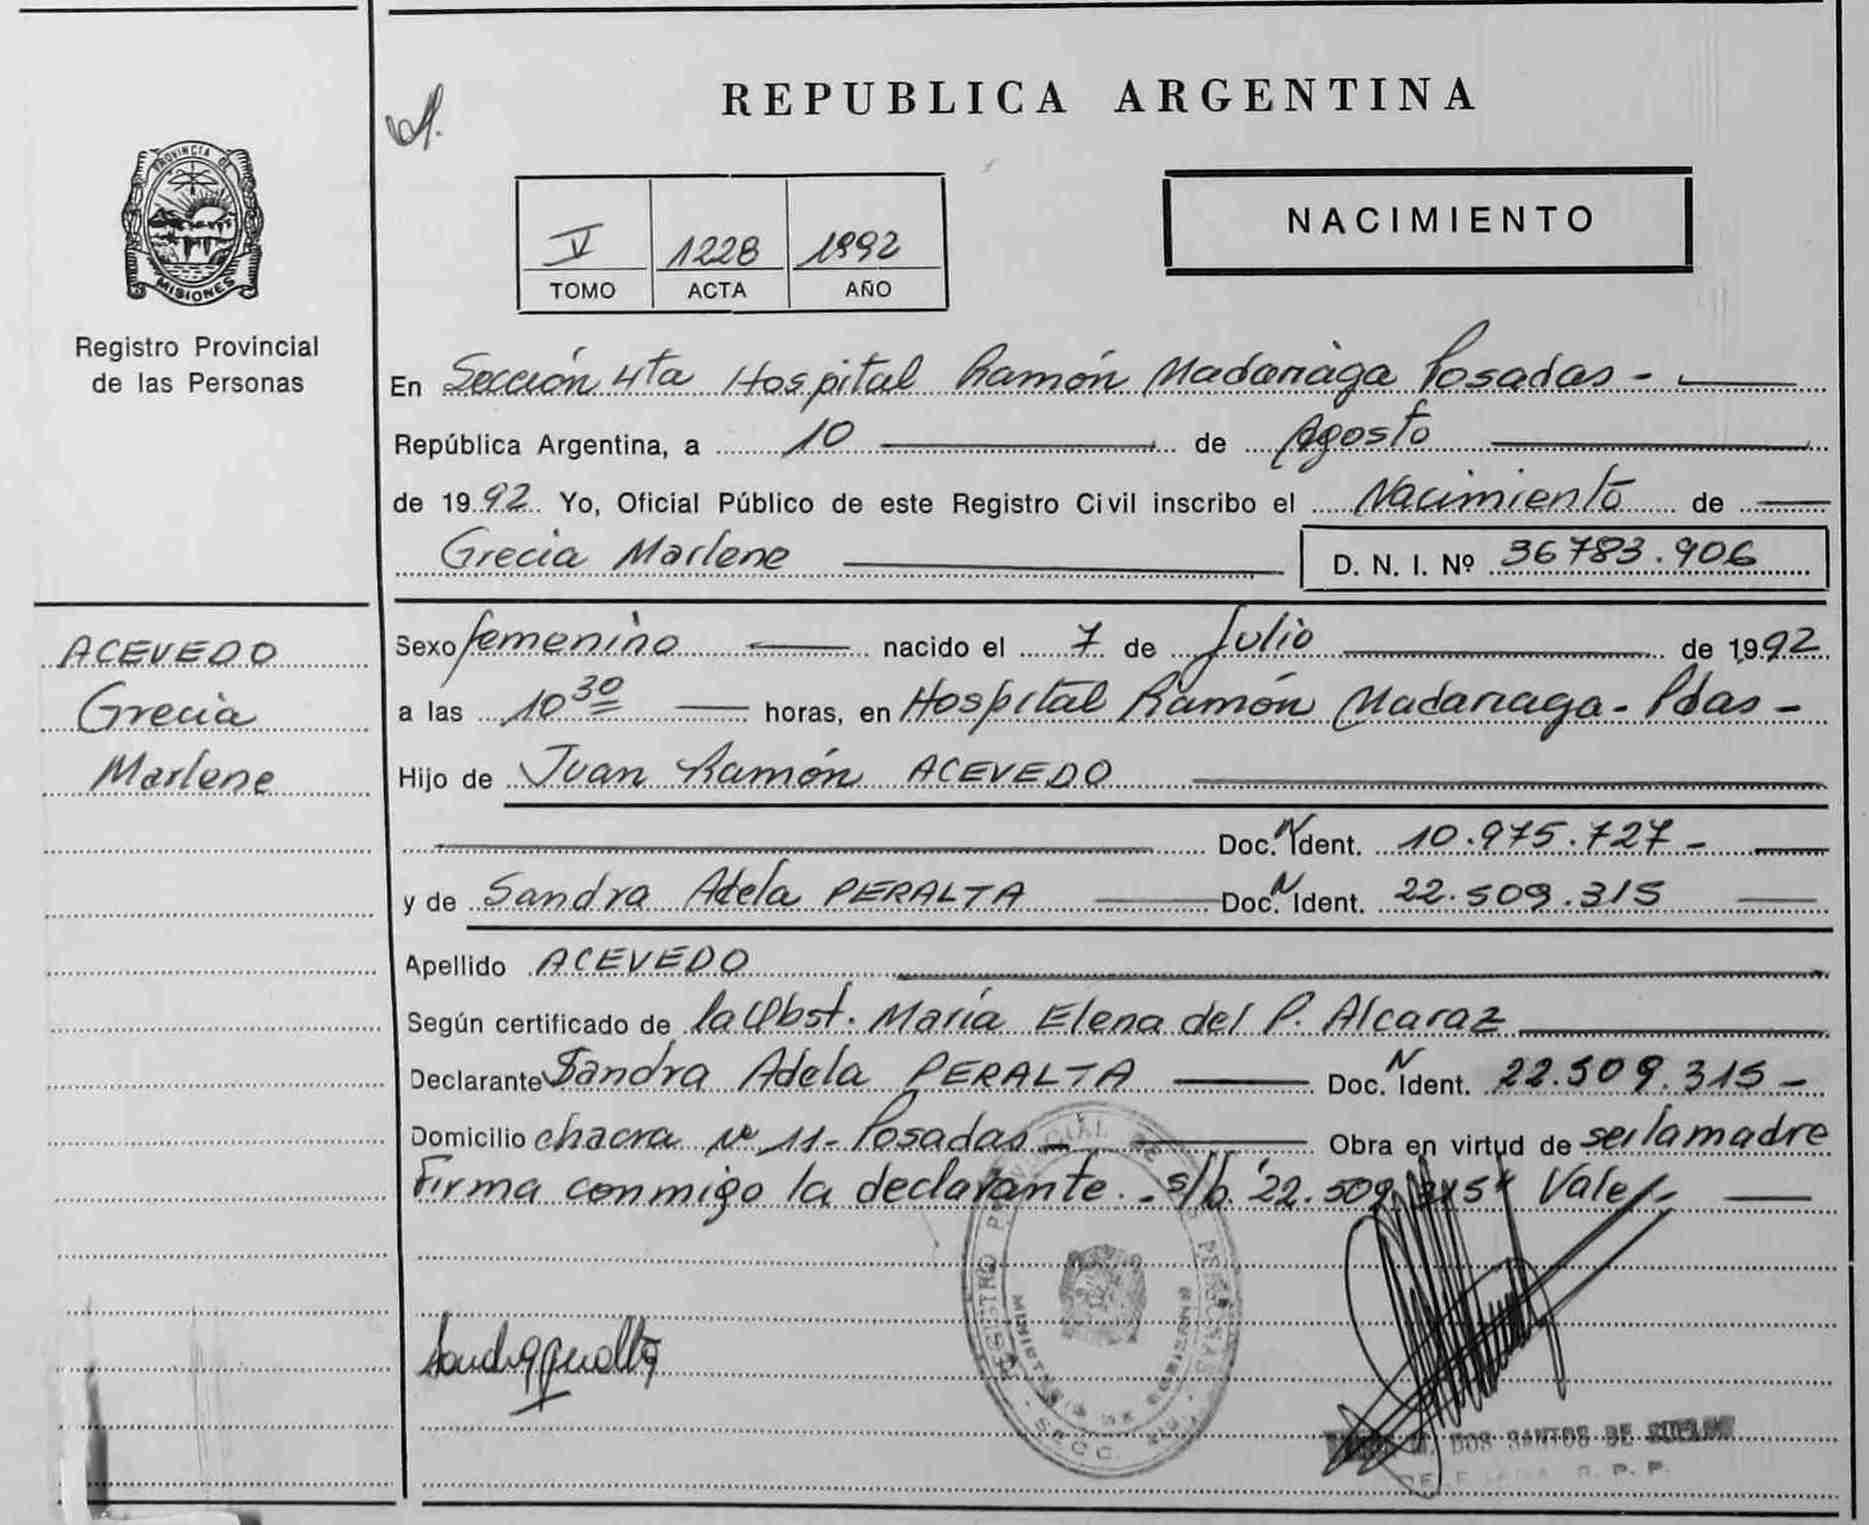 REPUBLICA ARGENTINA
PROVINCIA DE
MISIONES
Registro Provincial
de las Personas
V 1228 1992
TOMO ACTA AÑO
NACIMIENTO
En Sección 4ta Hospital Ramón Madariaga Posadas -
República Argentina, a 10 de Agosto
de 1992 Yo, Oficial Público de este Registro Civil inscribo el Nacimiento de
Grecia Marlene D. N. I. Nº 36783.906
ACEVEDO
Grecia
Marlene
Sexo femenino nacido el 7 de Julio de 1992
a las 10 30 horas, en Hospital Ramón Madariaga - Pdas -
Hijo de Juan Ramón ACEVEDO
Doc. N Ident. 10.975.727 -
y de Sandra Adela PERALTA Doc. N Ident. 22.509.315
Apellido ACEVEDO
Según certificado de la Obst. María Elena del P. Alcaraz
Declarante Sandra Adela PERALTA Doc. N Ident. 22.509.315 -
Domicilio chacra Nº 11 - Posadas - Obra en virtud de ser la madre
Firma conmigo la declarante. - s/b. "22.509.315" Vale. -
REGISTRO PROVINCIAL DE LAS PERSONAS
MINISTERIO DE GOBIERNO
SECC.
DOS SANTOS DE
R. P. P.